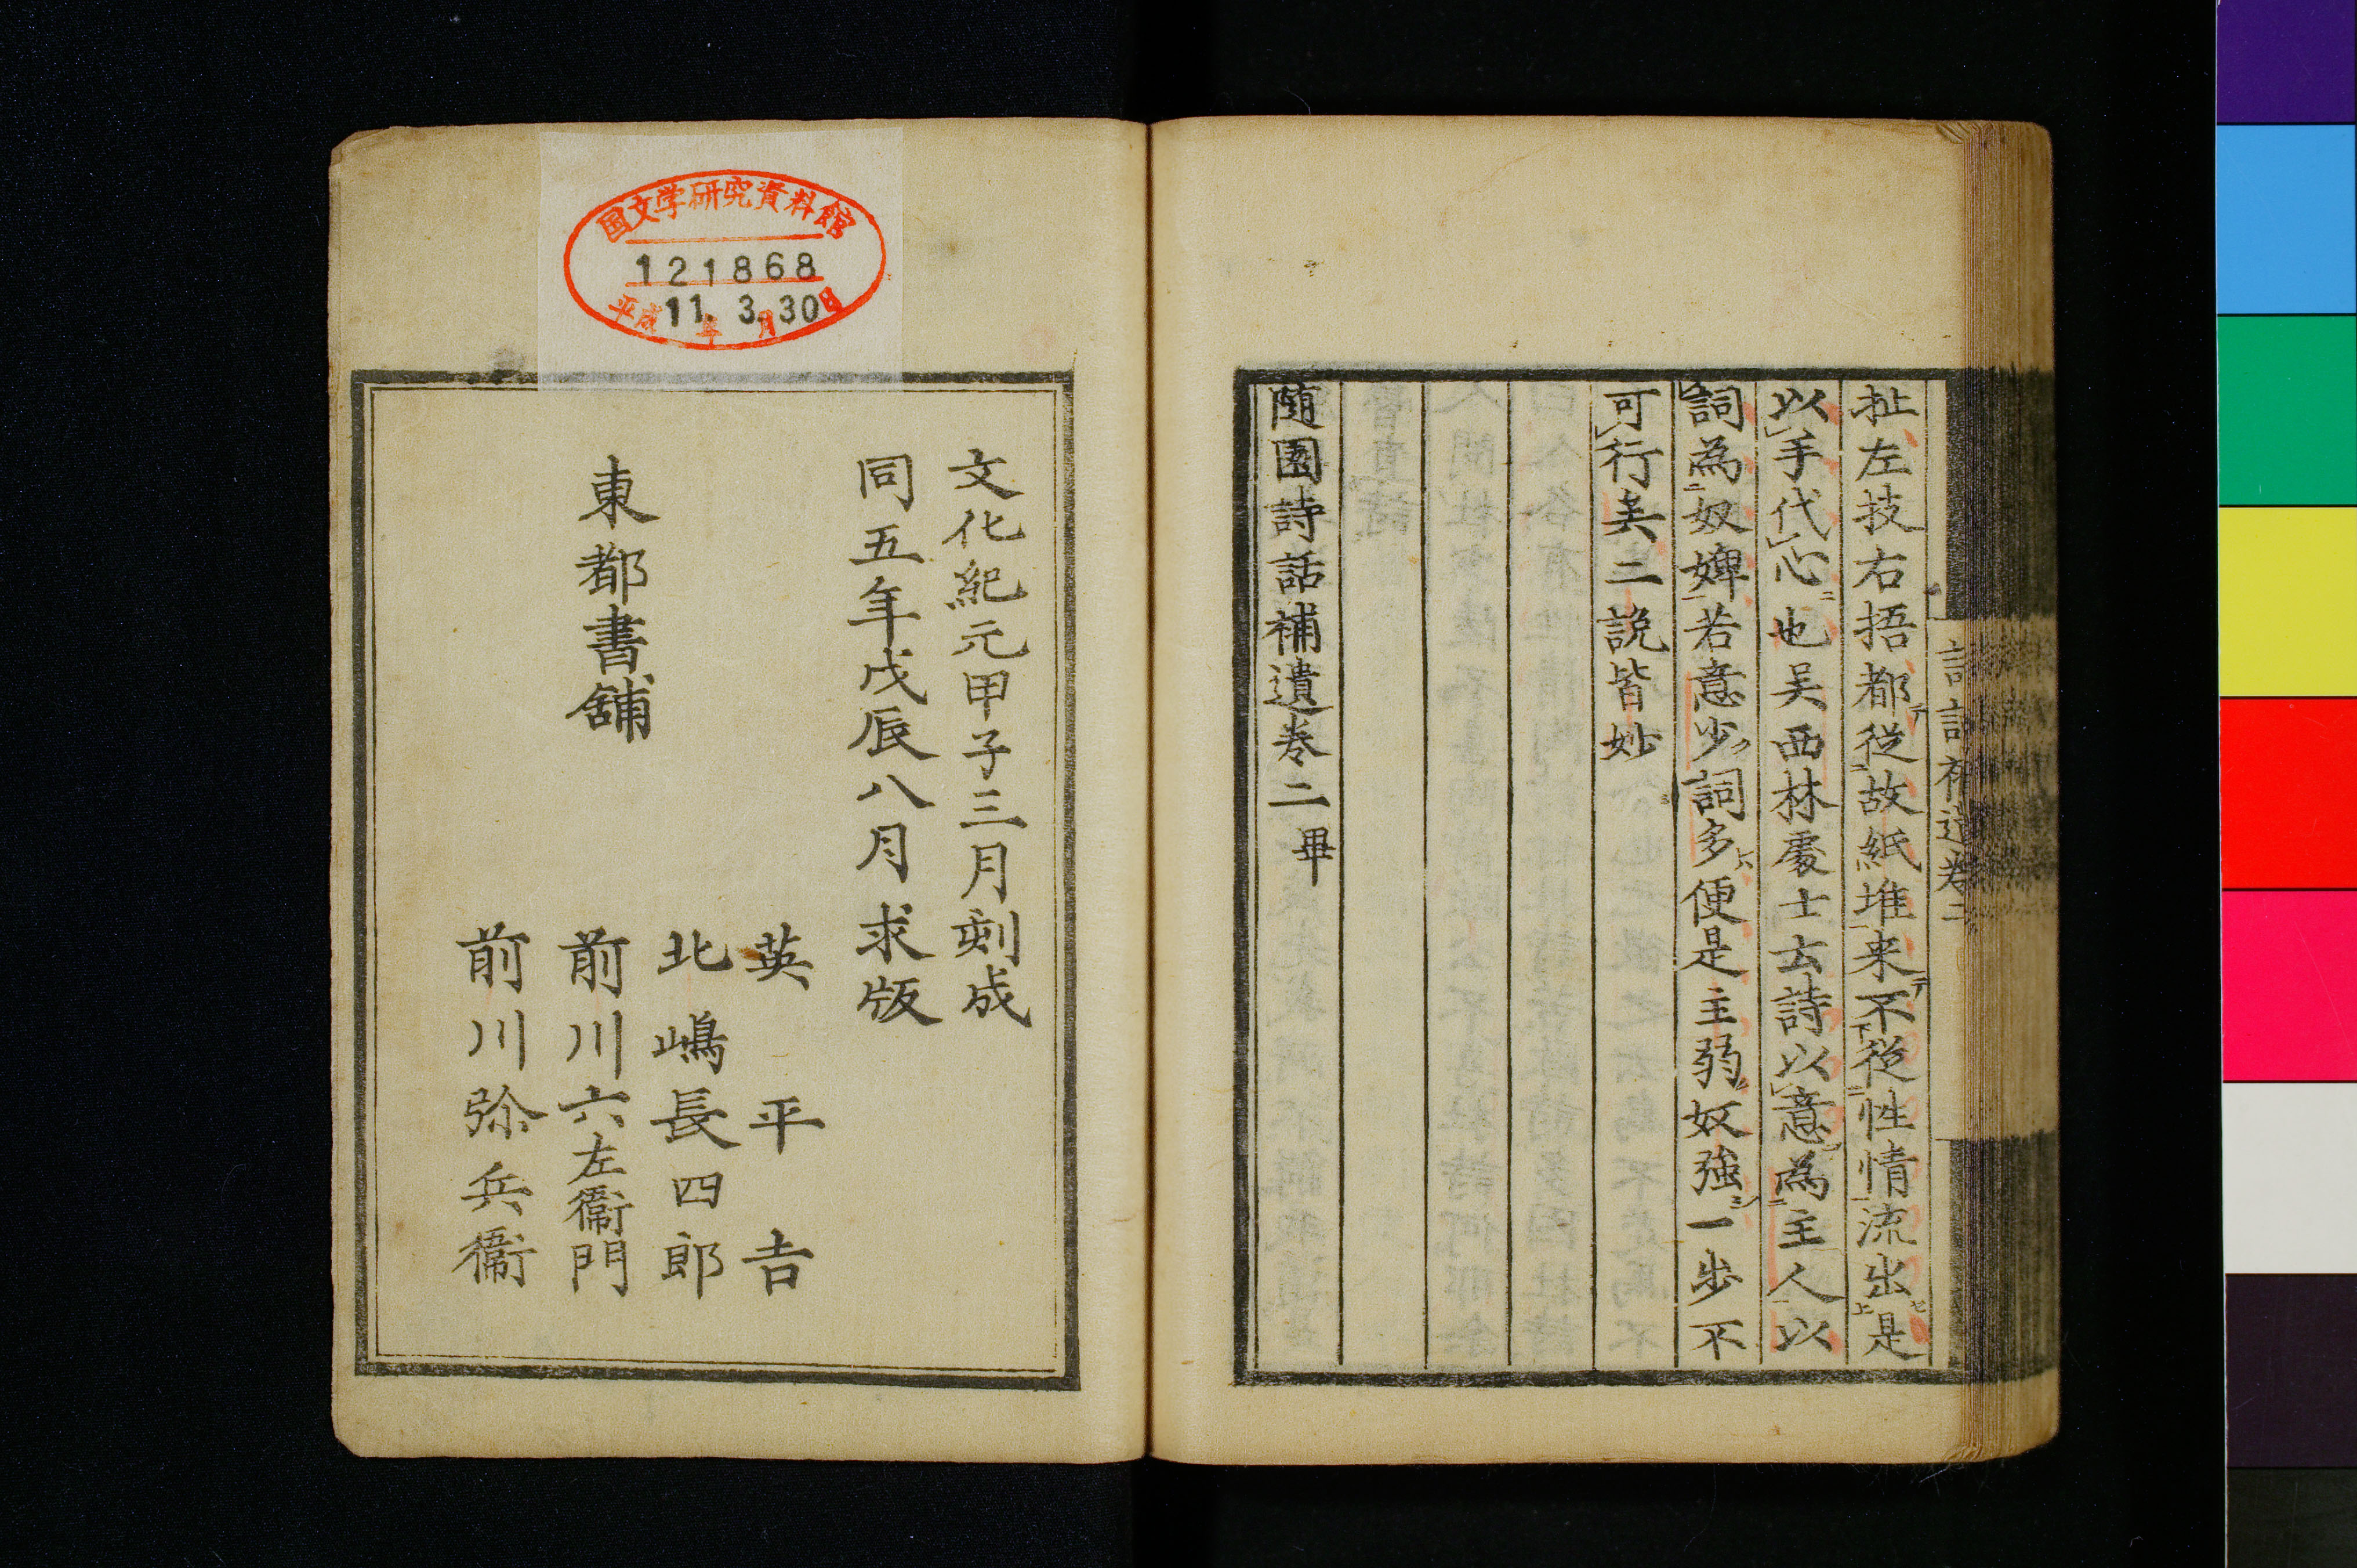 扯左技右捂都從故紙堆来不従性情流出是
以手代心也吴西林處士云詩以意為主人以
詞為奴婢若意少詞多便是主弱奴強一步不
可行矣二説皆妙
随園詩話補遺巻二畢
国文学研究資料館
121868
平成11年3月30日
文化紀元甲子三月刻成
同五年戊辰八月求版
東都書舗
英平吉
北嶋長四郎
前川六左衞門
前川弥兵衞